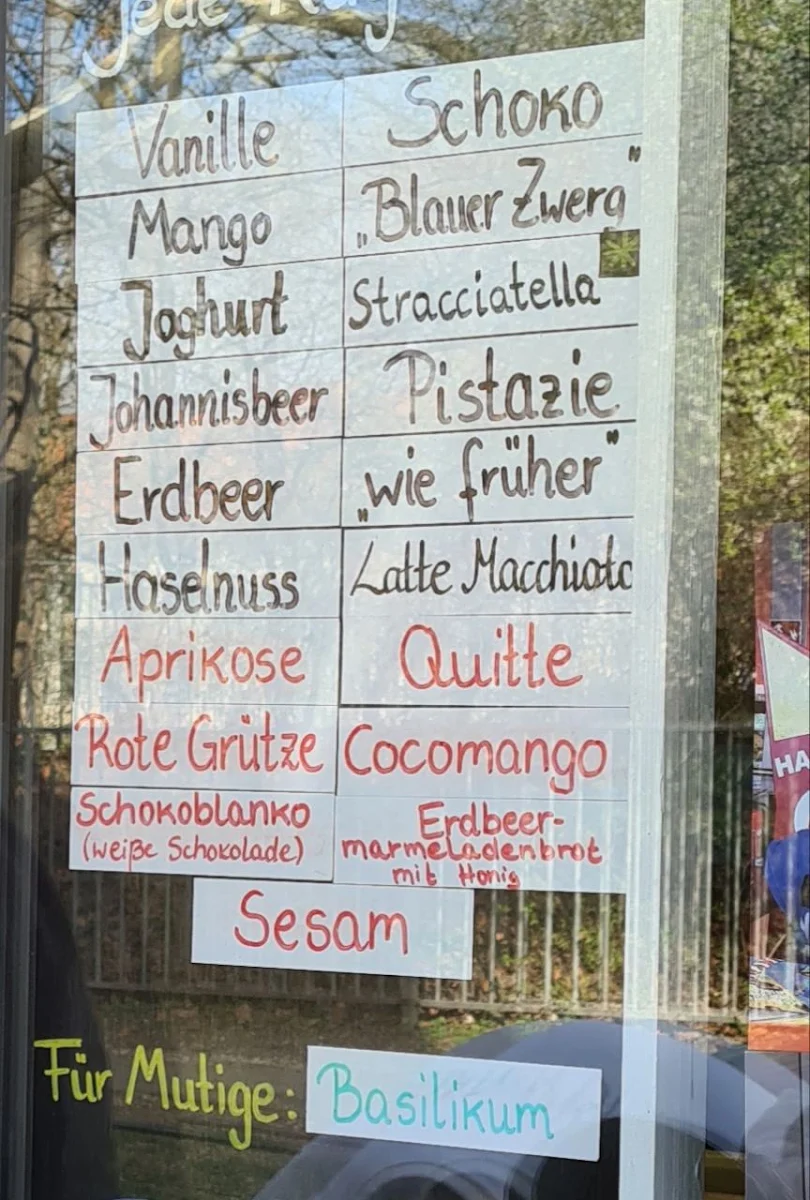 Jede
Vanille
Schoko
Mango
„Blauer Zwerg"
Joghurt
Stracciatella
Johannisbeer
Pistazie
Erdbeer
„wie früher"
Haselnuss
Latte Macchiato
Aprikose
Quitte
Rote Grütze
Cocomango
Schokoblanko
(weiße Schokolade)
Erdbeer-
marmeladenbrot
mit Honig
Sesam
Für Mutige: Basilikum
HA